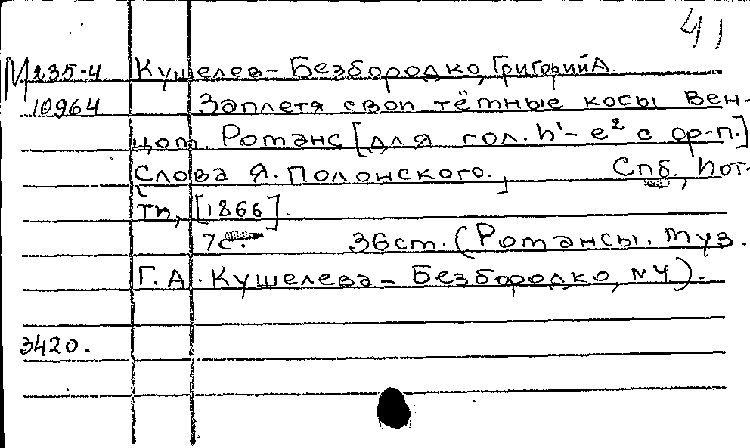 41
М 235-4 Кушелев-Безбородко, Григорий А.
10964 Заплетя свои тёмные косы вен-
цом. Романс [для гол. h¹- e² с ф-п.]
Слова Я. Полонского. Спб,
[1866].
7с. 36 ст. (Романсы. муз.
Г. А. Кушелева-Безбородко, № 4).
3420.